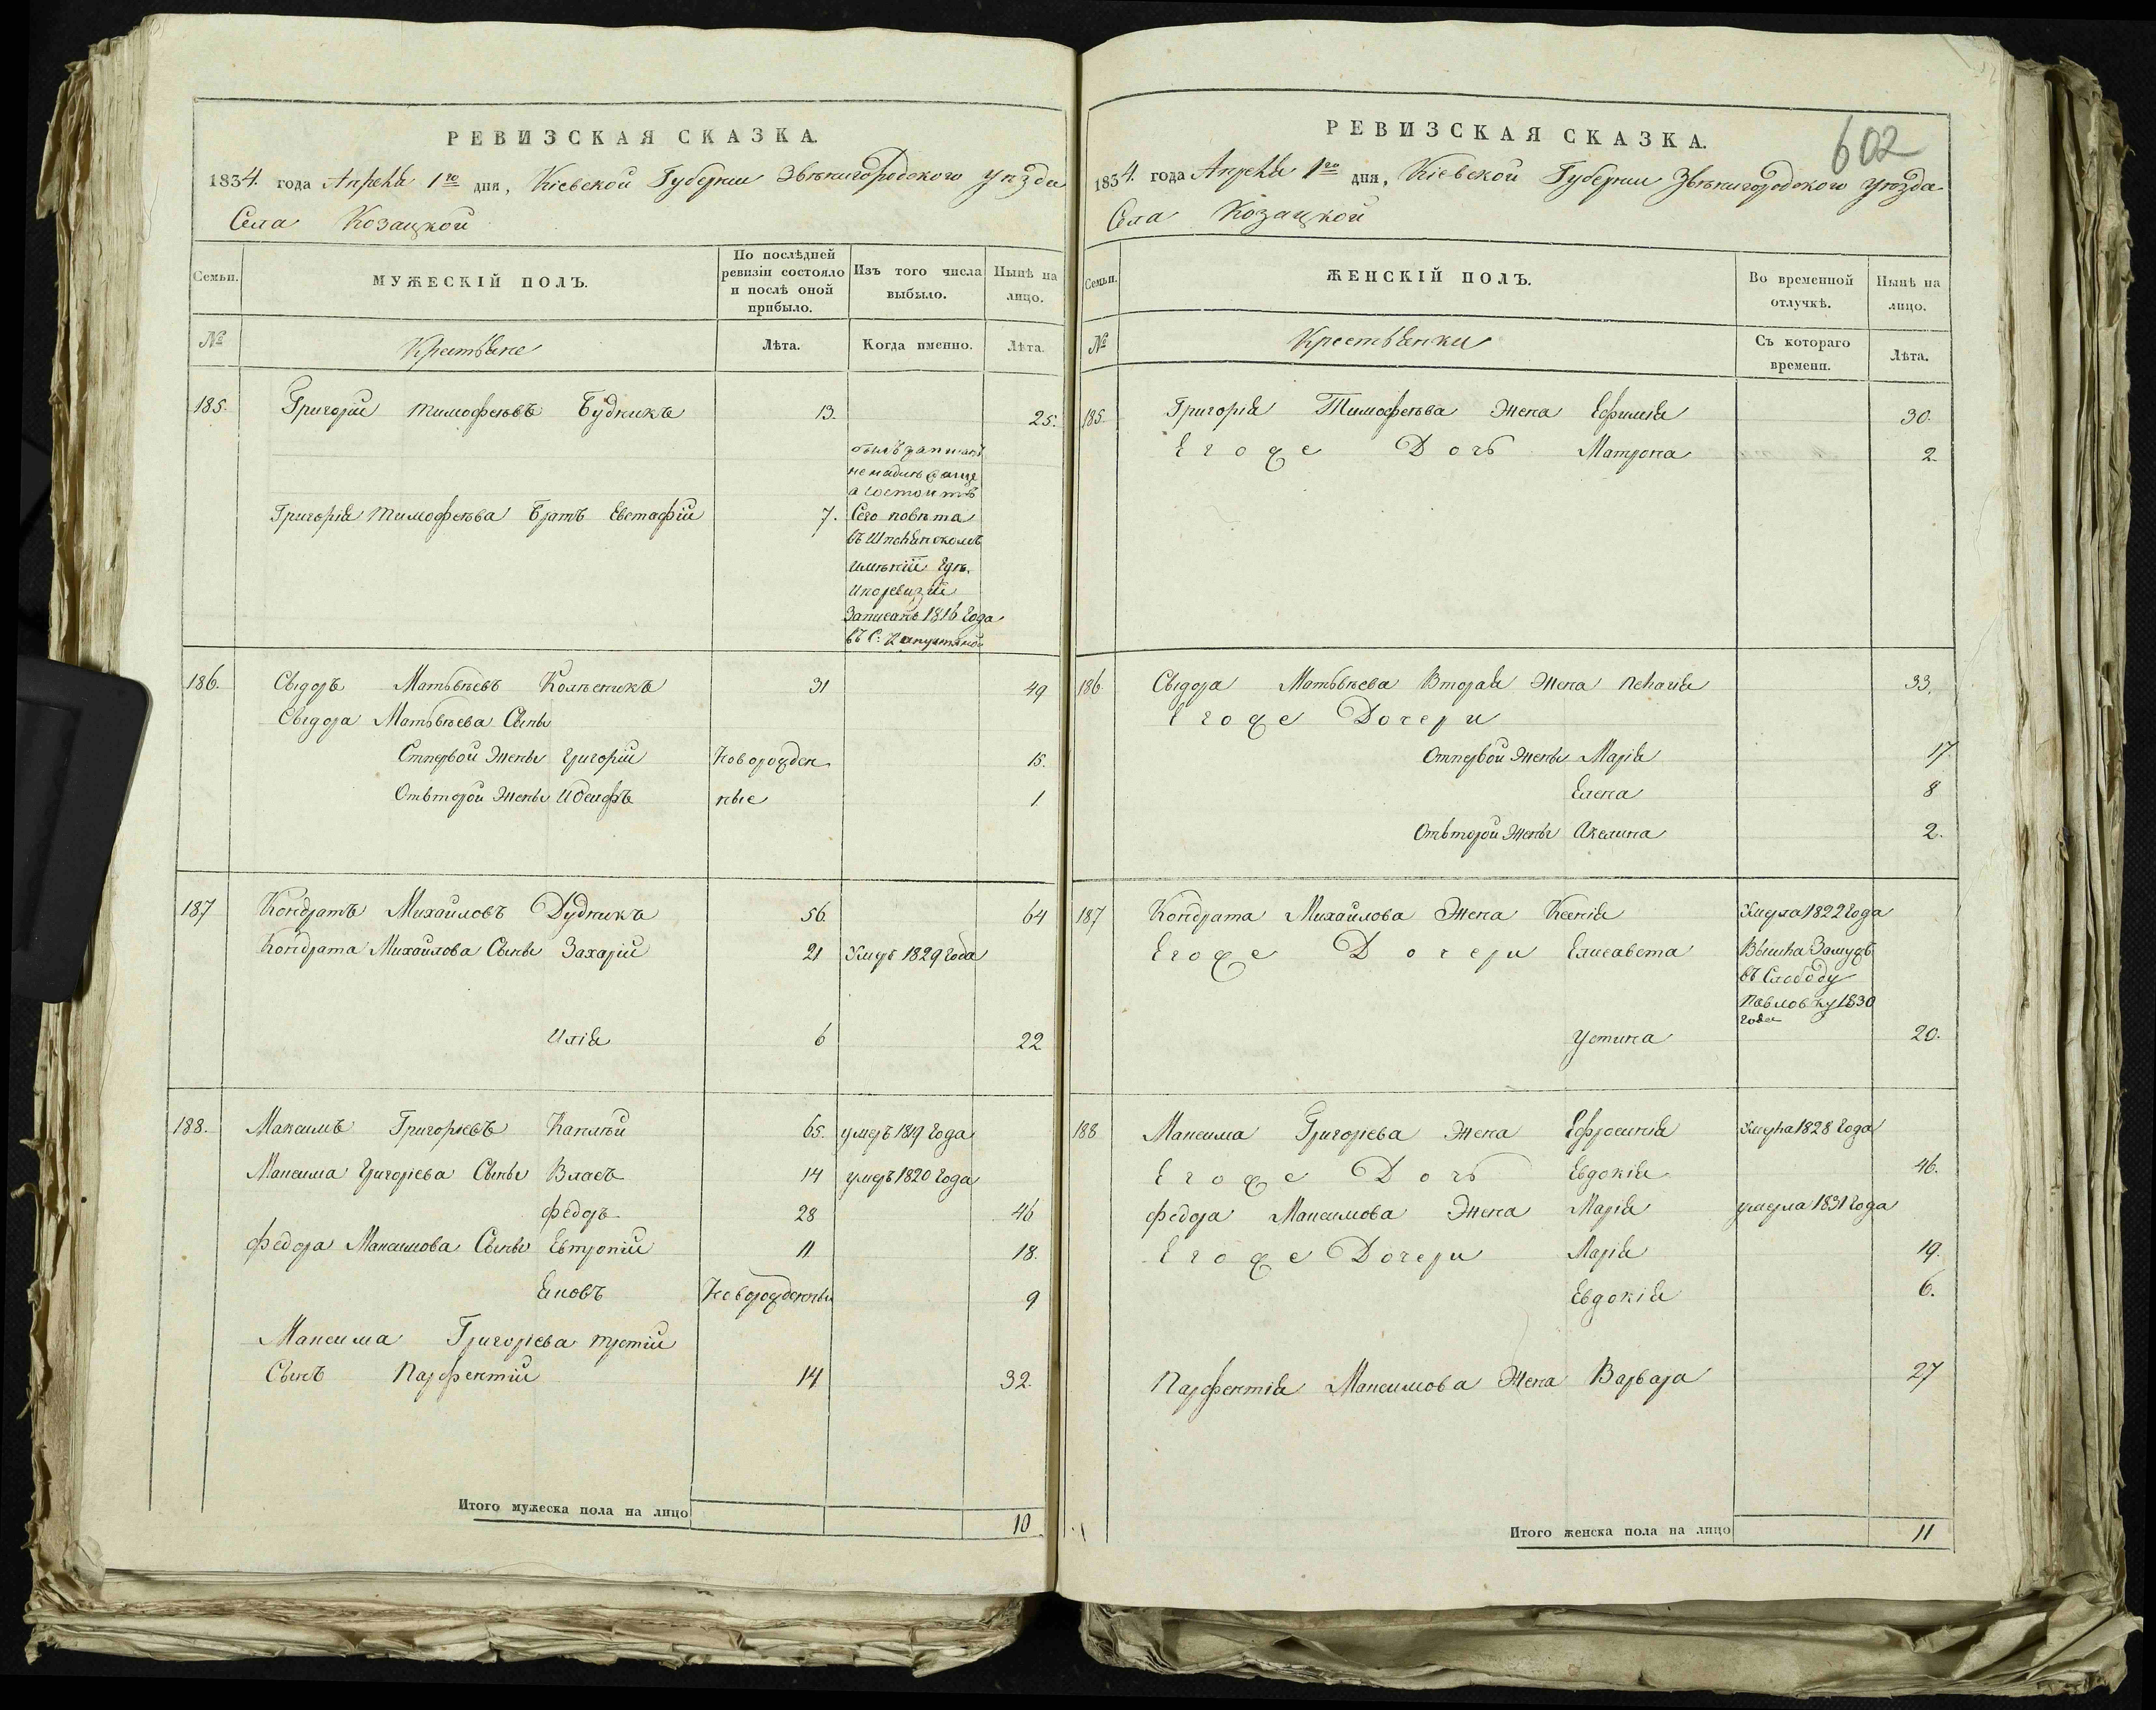 РЕВИЗСКАЯ СКАЗКА.
1834. года Апреля 1го дня, Кіевской Губерніи Звѣнигородского уѣзда
Села Козацкой
Семьи.
МУЖЕСКІЙ ПОЛЪ.
По послѣдней ревизіи состояло и послѣ оной прибыло.
Изъ того числа выбыло.
Нынѣ на лицо.
№
Крестьяне
Лѣта.
Когда именно.
Лѣта.
185. Григорій Тимофеѣвъ Будникъ 13. 25.
былъ записанъ
а состоитъ
Григорія Тимофеѣва братъ Евстафій 7. Сего повѣта
въ Шполянскомъ
имѣніи гдѣ
и по ревизіи
Записанъ 1816 года
въ С:
186. Сыдоръ Матьвѣевъ 31 49
Сыдора Матьвѣева Сыны
Отпервой Жены Григорій Новорожден 15.
Отвторой Жены Иосифъ ные 1
187 Кондратъ Михайловъ Дудникъ 56 64
Кондрата Михайлова Сыны Захарій 21 Умеръ 1829 года
Илія 6 22
188. Максимъ Григорьевъ 65. умеръ 1819 года
Максима Григорьева Сыны Власъ 14 умеръ 1820 года
Федоръ 28 46
Федора Максимова Сыны Евтропій 11 18.
Яковъ Новорожденный 9
Максима Григорьева третій
Сынъ Парфентій 14 32.
Итого мужеска пола на лицо 10
602
РЕВИЗСКАЯ СКАЗКА.
1834. года Апреля 1го дня, Кіевской Губерніи Звѣнигородского уѣзда
Села Козацкой
Семьи.
ЖЕНСКІЙ ПОЛЪ.
Во временной отлучкѣ.
Нынѣ на лицо.
№
Крестьянки
Съ котораго времени.
Лѣта.
185. Григорія Тимофеѣва Жена Ефимія 30.
Егоже Дочь Матрона 2.
186. Сыдора Матьвѣева Вторая Жена Пелагія 33.
Егоже Дочери
Отпервой Жены Марія 17.
Елена 8
Отвторой Жены Акелина 2.
187 Кондрата Михайлова Жена Ксенія Умерла 1822 года
Егоже Дочери Елисавета Вышла Замужъ
въ Слободу
Павловку 1830
года
Устина 20.
188 Максима Григорьева Жена Ефросинія Умерла 1828 года
Егоже Дочь Евдокія 46.
Федора Максимова Жена Марія умерла 1831 года
Егоже Дочери Марія 19.
Евдокія 6.
Парфентія Максимова Жена Варвара 27
Итого женска пола на лицо 11